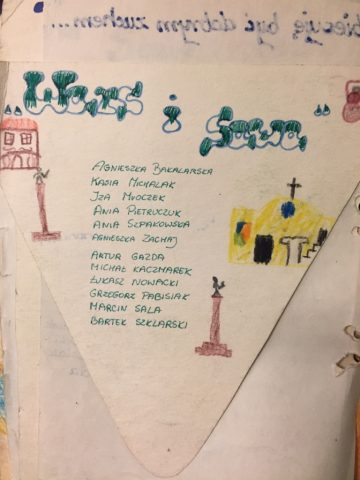 obiecuję być dobrym zuchem...
„Wars i Sawa”
AGNIESZKA BAKALARSKA
KASIA MICHALAK
IZA MROCZEK
ANIA PIETRUCZUK
ANIA SZPAKOWSKA
AGNIESZKA ZACHAJ
ARTUR GAZDA
MICHAŁ KACZMAREK
ŁUKASZ NOWACKI
GRZEGORZ PABISIAK
MARCIN SALA
BARTEK SZKLARSKI